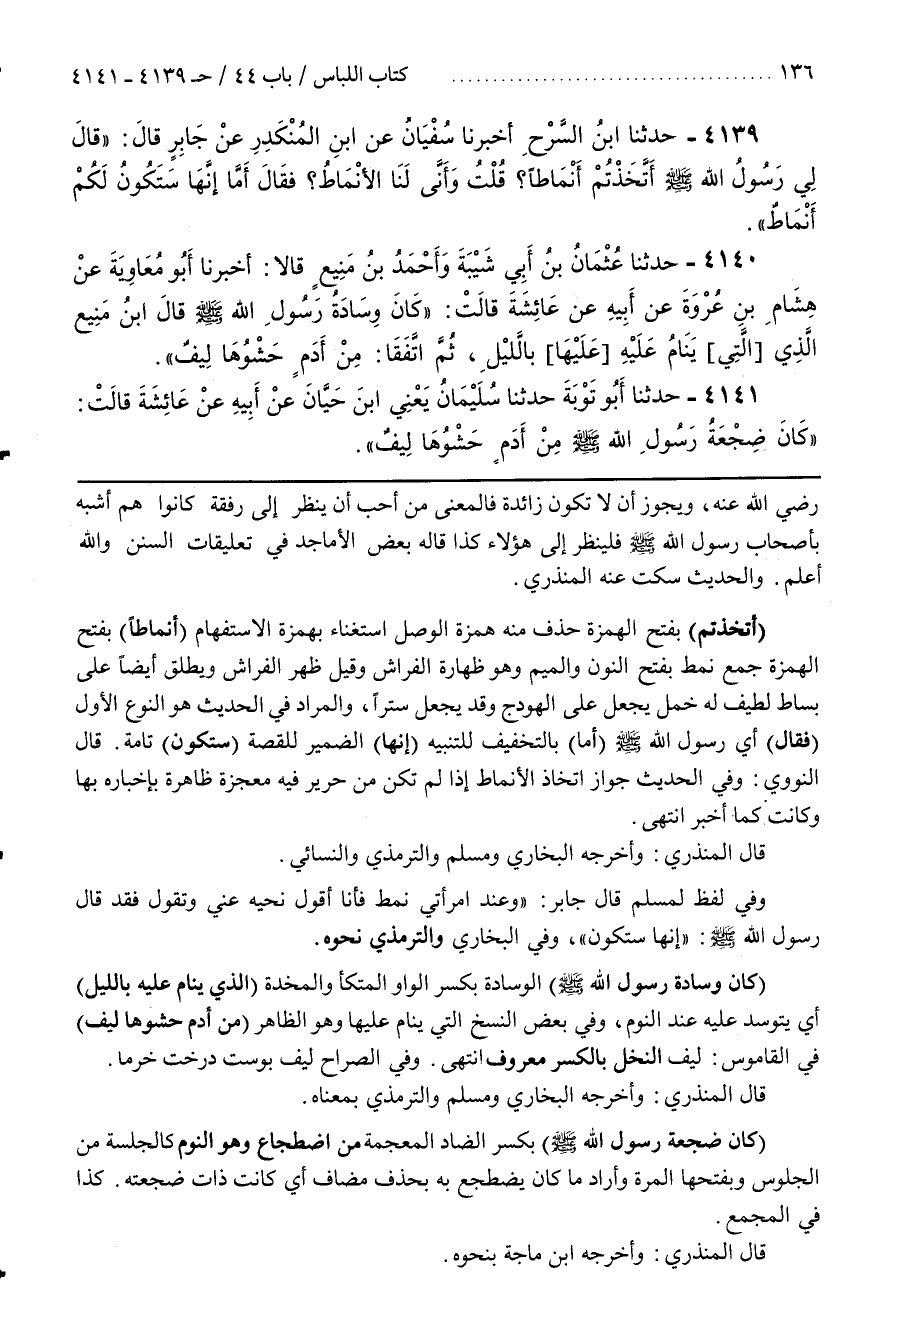 ١٣٦ ........................................ كتاب اللباس / باب ٤٤ / حـ ٤١٣٩ - ٤١٤١
٤١٣٩ - حدثنا ابنُ السَّرْحِ أخبرنا سُفْيَانُ عن ابنِ المُنْكَدِرِ عنْ جَابِرٍ قالَ: «قالَ
لِي رَسُولُ الله ﷺ أَتَّخَذْتُمْ أَنْمَاطاً؟ قُلْتُ وَأَنَّى لَنَا الأنْمَاطُ؟ فقَالَ أَمَّا إنَّهَا سَتَكُونُ لَكُمْ
أَنْمَاطٌ».
٤١٤٠ - حدثنا عُثْمَانُ بنُ أَبِي شَيْبَةَ وَأَحْمَدُ بنُ مَنِيعٍ قالا: أخبرنا أَبُو مُعَاوِيَةَ عنْ
هِشَامِ بنِ عُرْوَةَ عن أَبِيهِ عن عَائِشَةَ قالَتْ: «كَانَ وِسَادَةُ رَسُولِ الله ﷺ قالَ ابنُ مَنِيعٍ
الَّذِي [الَّتِي] يَنَامُ عَلَيْهِ [عَلَيْهَا] بالَّليْلِ، ثُمَّ اتَّفَقَا: مِنْ أَدَمٍ حَشْوُهَا لِيفٌ».
٤١٤١ - حدثنا أَبُو تَوْبَةَ حدثنا سُلَيْمَانُ يَعْنِي ابنَ حَيَّانَ عنْ أَبِيهِ عنْ عَائِشَةَ قالَتْ:
«كَانَ ضِجْعَةُ رَسُولِ الله ﷺ مِنْ أَدَمٍ حَشْوُهَا لِيفٌ».
رضي الله عنه، ويجوز أن لا تكون زائدة فالمعنى من أحب أن ينظر إلى رفقة كانوا هم أشبه
بأصحاب رسول الله ﷺ فلينظر إلى هؤلاء كذا قاله بعض الأماجد في تعليقات السنن والله
أعلم. والحديث سكت عنه المنذري.
(أتخذتم) بفتح الهمزة حذف منه همزة الوصل استغناء بهمزة الاستفهام (أنماطاً) بفتح
الهمزة جمع نمط بفتح النون والميم وهو ظهارة الفراش وقيل ظهر الفراش ويطلق أيضاً على
بساط لطيف له خمل يجعل على الهودج وقد يجعل ستراً، والمراد في الحديث هو النوع الأول
(فقال) أي رسول الله ﷺ (أما) بالتخفيف للتنبيه (إنها) الضمير للقصة (ستكون) تامة. قال
النووي: وفي الحديث جواز اتخاذ الأنماط إذا لم تكن من حرير فيه معجزة ظاهرة بإخباره بها
وكانت كما أخبر انتهى.
قال المنذري: وأخرجه البخاري ومسلم والترمذي والنسائي.
وفي لفظ لمسلم قال جابر: «وعند امرأتي نمط فأنا أقول نحيه عني وتقول فقد قال
رسول الله ﷺ: «إنها ستكون»، وفي البخاري والترمذي نحوه.
(كان وسادة رسول الله ﷺ) الوسادة بكسر الواو المتكأ والمخدة (الذي ينام عليه بالليل)
أي يتوسد عليه عند النوم، وفي بعض النسخ التي ينام عليها وهو الظاهر (من أدم حشوها ليف)
في القاموس: ليف النخل بالكسر معروف انتهى. وفي الصراح ليف بوست درخت خرما.
قال المنذري: وأخرجه البخاري ومسلم والترمذي بمعناه.
(كان ضجعة رسول الله ﷺ) بكسر الضاد المعجمة من اضطجاع وهو النوم كالجلسة من
الجلوس وبفتحها المرة وأراد ما كان يضطجع به بحذف مضاف أي كانت ذات ضجعته. كذا
في المجمع.
قال المنذري: وأخرجه ابن ماجة بنحوه.